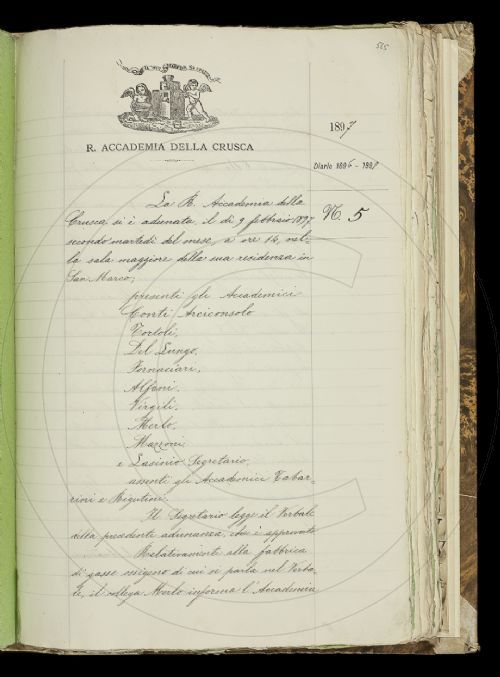 565
R. ACCADEMIA DELLA CRUSCA
1897
Diario 1896 - 1897
N. 5
La R. Accademia della
Crusca si è adunata, il dì 9 febbraio 1897
secondo martedì del mese, a ore 14, nel-
la sala maggiore della sua residenza in
San Marco;
presenti gli Accademici
Conti Arciconsolo
Tortoli.
Del Lungo.
Fornaciari.
Alfani.
Virgili.
Merlo.
Mazzoni
e Lasinio Segretario.
assenti gli Accademici Tabar-
rini e Rigutini.
Il Segretario legge il Verbale
della precedente adunanza, che è approvato
Relativamente alla fabbrica
di gasse ossigeno di cui si parla nel Verba-
le, il collega Merlo informa l'Accademia